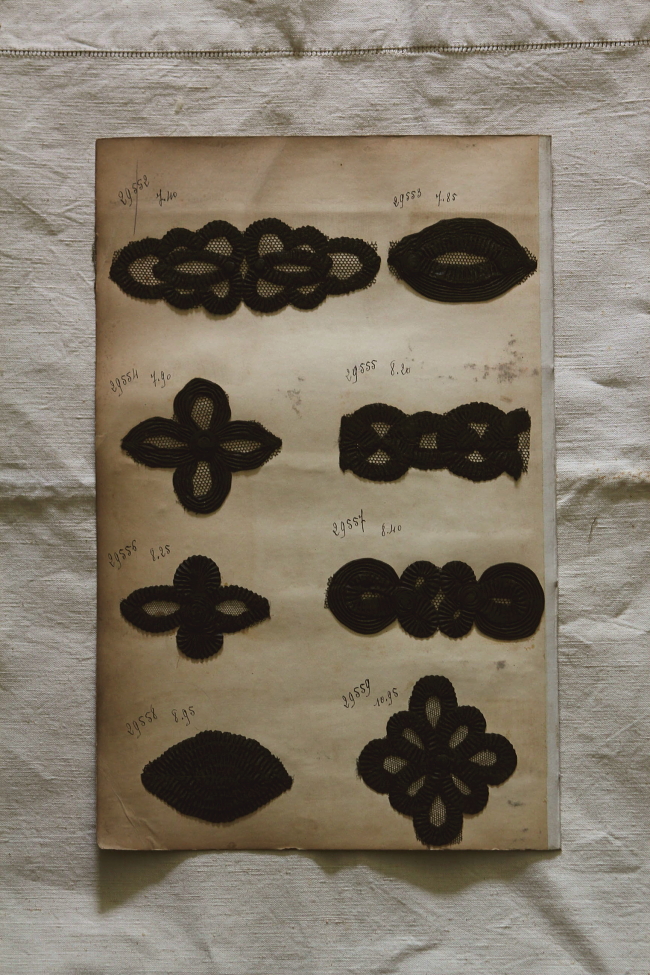 29552 7.40
29553 7.85
29554 7.90
29555 8.20
29556 8.25
29557 8.40
29558 8.95
29559 10.95